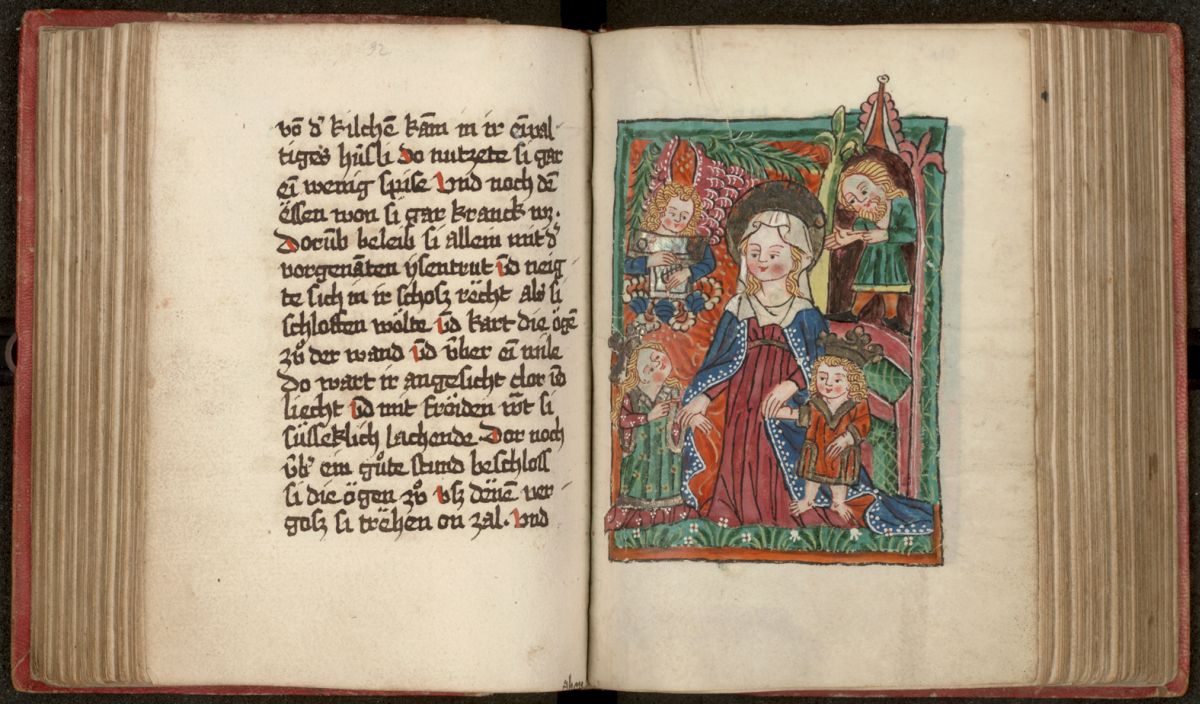 92
vō d' kilchē kam in ir ēwal-
tiges hüsli do nutzete si gar
ein wenig spise Vnd noch dē
ëssen won si gar kranck wz.
Dorūb beleib si allein mit d'
vorgenāten ysentrut v̄d neig-
te sich in ir schosz rëcht als si
schloffen wölte v̄d kart die ögē
zů der wand v̄d v̄ber ein wile
do wart ir angesicht clor v̄d
liecht v̄d mit fröiden w̄t si
süsseklich lachende. Dor noch
v̄b' ein gůte stund beschloss
si die ögen zů vsz dënē ver-
gosz si trëhen on zal. Vnd